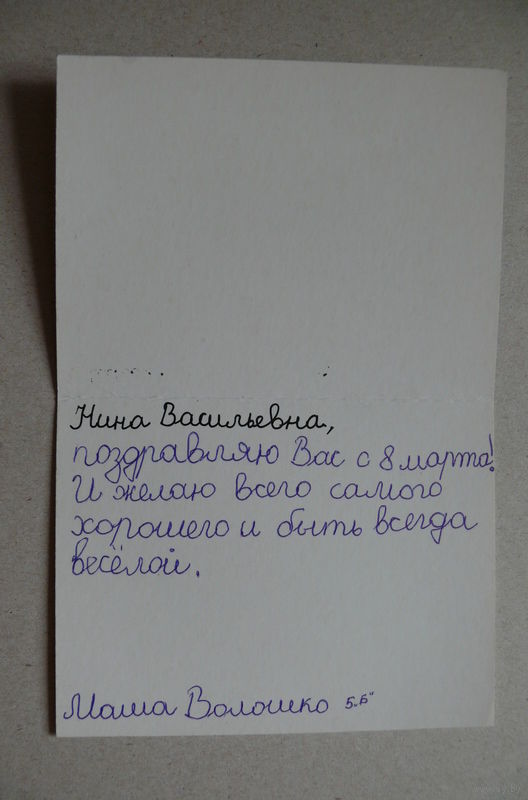 Нина Васильевна,
поздравляю Вас с 8 марта!
И желаю всего самого
хорошего и быть всегда
весёлой.
Маша Волошко 5„Б"